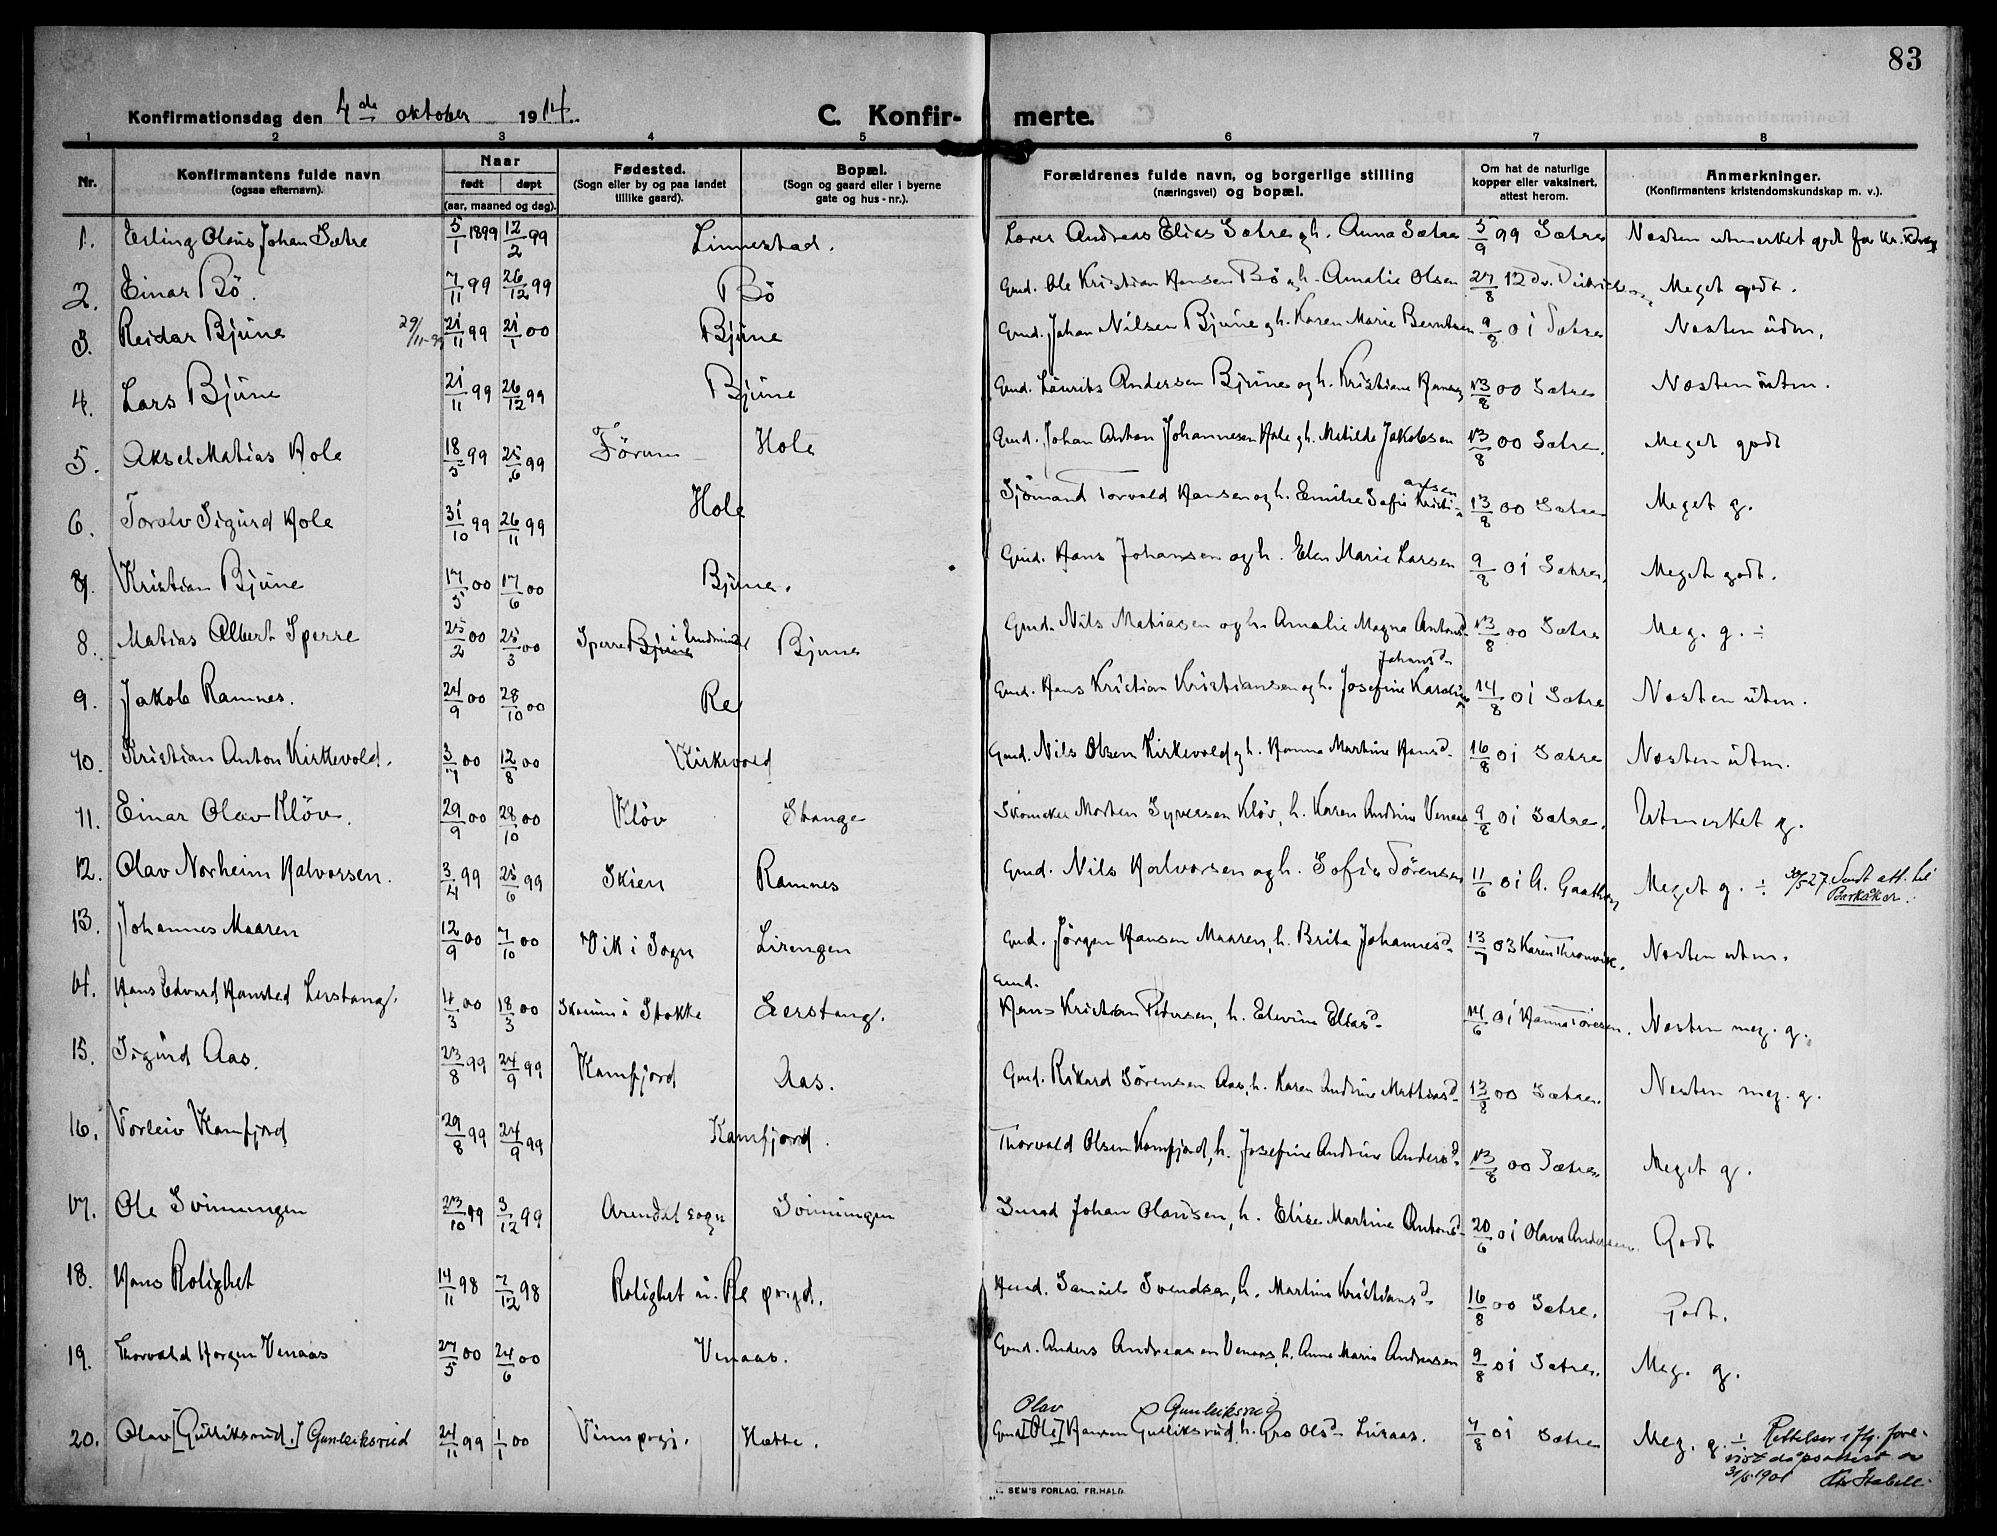 83
Konfirmationsdag den 4de oktober 1914. C. Konfirmerte.
1 2 3 4 5 6 7 8
Nr. Konfirmantens fulde navn (ogsaa efternavn). Naar født døpt (aar, maaned og dag). Fødested. (Sogn eller by og paa landet tillike gaard). Bopæl. (Sogn og gaard eller i byerne gate og hus-nr.). Forældrenes fulde navn, og borgerlige stilling (næringsvei) og bopæl. Om hat de naturlige kopper eller vaksinert, attest herom. Anmerkninger. (Konfirmantens kristendomskundskap m. v.).
1. Erling Olaus Johan Sætre 5/1 1899 12/2 99 Linnestad. Lærer Andreas Elias Sætre og h. Anna Sætre 5/9 99 Sætre Næsten utmerket godt for kr. kdsk
2. Einar Bö. 7/11 99 26/12 99 Bö Gmd. Ole Kristian Hansen Bö og h. Amalie Olsen 27/8 12 Meget godt.
3. Reidar Bjüne 29/11-99 21/11 99 21/1 00 Bjüne Gmd. Johan Nilsen Bjüne og h. Karen Marie Berntsen 9/8 01 Sætre Næsten utm.
4. Lars Bjüne 21/11 99 26/12 99 Bjüne Gmd. Laurits Andersen Bjüne og h. Kristiane Hansen 13/8 00 Sætre Næsten utm.
5. Aksel Matias Hole 18/5 99 25/6 99 Förum Hole Gmd. Johan Anton Johannesen Hole og h. Matilde Jakobsen 13/8 00 Sætre. Meget godt
6. Toralv Sigurd Hole 31/10 99 26/11 99 Hole Sjömand Torvald Hansen og h. Emilie Sofie Kristiansen 13/8 00 Sætre Meget g.
7. Kristian Bjüne 17/5 00 17/6 00 Bjüne. Gmd. Hans Johansen og h. Elen Marie Larsen 9/8 01 Sætre. Meget godt.
8. Matias Albert Sperre 25/2 00 25/3 00 Sperre Bjüne Bjüne Gmd. Nils Matiasen og h. Amalie Magna Antonsd. 13/8 00 Sætre Meg. g. ÷
9. Jakob Ramnes. 24/9 00 28/10 00 Re Gmd. Hans Kristian Kristiansen og h. Josefine Karoline Johansd. 14/8 01 Sætre Næsten utm.
10. Kristian Anton Kirkevold. 3/7 00 12/8 00 Kirkevold Gmd. Nils Olsen Kirkevold og h. Hanna Martine Hansd. 16/8 01 Sætre Næsten utm.
11. Einar Olav Klöv. 29/9 00 28/10 00 Klöv Stange Skomaker Morten Syversen Klöv, h. Karen Andrine Venaas 9/8 01 Sætre. Utmerket g.
12. Olav Norheim Halvorsen. 3/4 99 25/6 99 Skien Ramnes Gmd. Nils Halvorsen og h. Sofie Sörensen 11/6 01 Meget g. ÷ 30/5 27 Sendt att. til Barkåker.
13. Johannes Maaren 12/9 00 7/10 00 Vik i Sogn Lirengen Gmd. Jörgen Hansen Maaren, h. Brita Johannesd. 13/7 03 Karen Næsten utm.
14. Hans Edvard Hansted Lerstang. 4/3 00 18/3 00 i Stokke Lerstang. Gmd. Hans Kristian Petersen, h. Elevine Eliasd. 14/6 01 Hanna Næsten meg. g.
15. Sigurd Aas. 23/8 99 24/9 99 Kamfjord Aas. Gmd. Rikard Sörensen Aas, h. Karen Andrine Mathiasd. 13/8 00 Sætre. Næsten meg. g.
16. Torleiv Kamfjord 29/8 99 24/9 99 Kamfjord. Thorvald Olsen Kamfjord, h. Josefine Andrine Andersd. 13/8 00 Sætre. Meget g.
17. Ole Svinningen 23/10 99 3/12 99 Arendal sogn Svinningen Smed Johan Olausen, h. Elise Martine Antonsd. 20/6 01 Olava Andersen. Godt
18. Hans Rolighet 14/11 98 7/12 98 Rolighet u. Re prgd. Hmd. Samuel Svendsen, h. Martine Kristiansd. 16/8 00 Sætre. Godt.
19. Thorvald Horgen Venaas 27/5 00 24/6 00 Venaas. Gmd. Anders Andreassen Venaas, h. Anne Marie Andersen 9/8 01 Sætre. Meg. g.
20. Olav [Gulliksrud.] Gunleiksrud 24/11 99 1/1 00 Vinje prgj. Hætte. Gmd. [Ole] Olav Hansen Gulliksrud Gunleiksrud h. Gro Olsd. 7/8 01 Sætre Meg. g. ÷ Rettelser iflg. forevist dåpsattest
SEM'S FORLAG, FR.HALD.